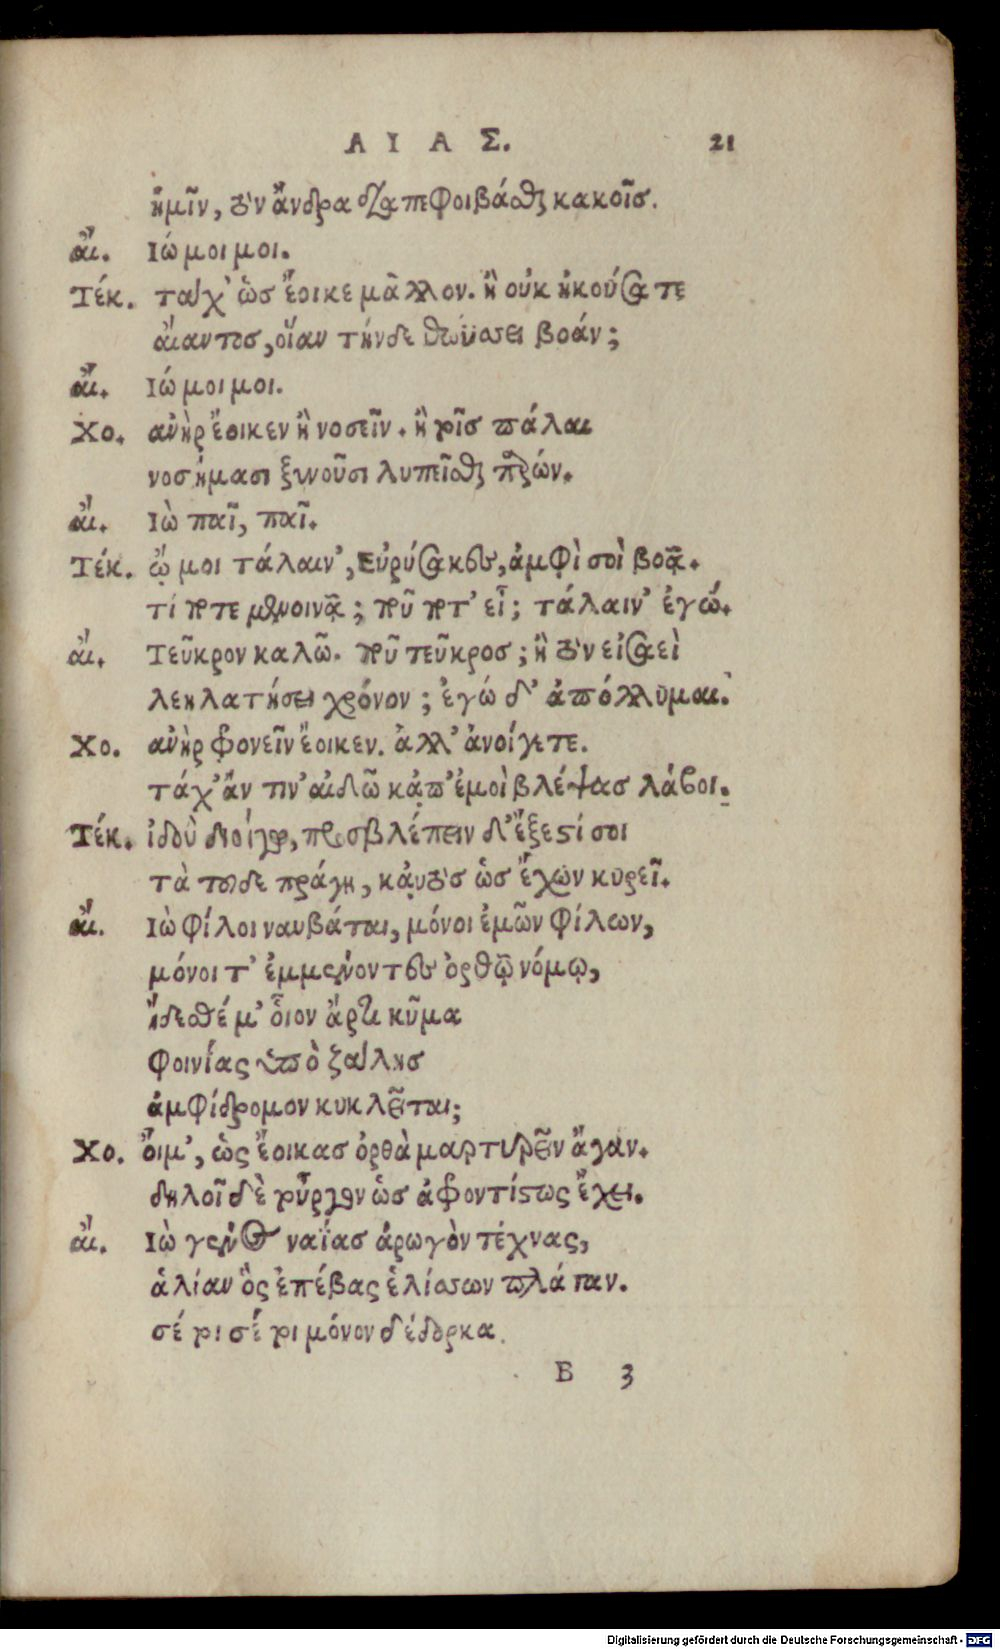 ΑΙΑΣ. 21
ἡμῖν, τὸν ἄνδρα διαπεφοιβάσθαι κακοῖσ.
αἴ. Ιώ μοι μοι.
Τέκ. ταχ' ὡσ ἔοικε μᾶλλον. ἢ οὐκ ἠκούσατε
αἴαντοσ, οἵαν τήνδε θωΰσσει βοάν;
αἴ. Ιώ μοι μοι.
Χο. ἁνὴρ ἔοικεν ἢ νοσεῖν. ἢ τοῖσ πάλαι
νοσήμασι ξυνοῦσι λυπεῖσθαι παρών.
αἴ. Ιὼ παῖ, παῖ.
Τέκ. ᾤ μοι τάλαιν', Εὐρύσακες, ἀμφὶ σοὶ βοᾷ.
τί ποτε μενοινᾷ; ποῦ ποτ' εἶ; τάλαιν' ἐγώ.
αἴ. Τεῦκρον καλῶ. ποῦ τεῦκροσ; ἢ τὸν εἰσαεὶ
λεηλατήσει χρόνον; ἐγώ δ' ἀπόλλυμαι.
Χο. ἁνὴρ φρονεῖν ἔοικεν. ἀλλ' ἀνοίγετε.
τάχ' ἄν τιν' αἰδῶ κᾀπ' ἐμοὶ βλέψασ λάβοι.
Τέκ. ἰδοὺ διοίγω, προσβλέπειν δ' ἔξεστί σοι
τὰ τοῦδε πράγη, καὐτὸσ ὡσ ἔχων κυρεῖ.
αἴ. Ιὼ φίλοι ναυβάται, μόνοι ἐμῶν φίλων,
μόνοι τ' ἐμμένοντες ὀρθῷ νόμῳ,
ἴδεσθέ μ' οἷον ἄρτι κῦμα
φοινίας ὑπὸ ζάλησ
ἀμφίδρομον κυκλεῖται;
Χο. οἴμ', ὡς ἔοικασ ὀρθὰ μαρτυρεῖν ἄγαν.
δηλοῖ δὲ τοὖργον ὡσ ἀφροντίστως ἔχει.
αἴ. Ιὼ γένος ναΐασ ἀρωγὸν τέχνας,
ἁλίαν ὃς ἐπέβας ἑλίσσων πλάταν.
σέ τοι σέ τοι μόνον δέδορκα.
B 3
Digitalisierung gefördert durch die Deutsche Forschungsgemeinschaft - DFG